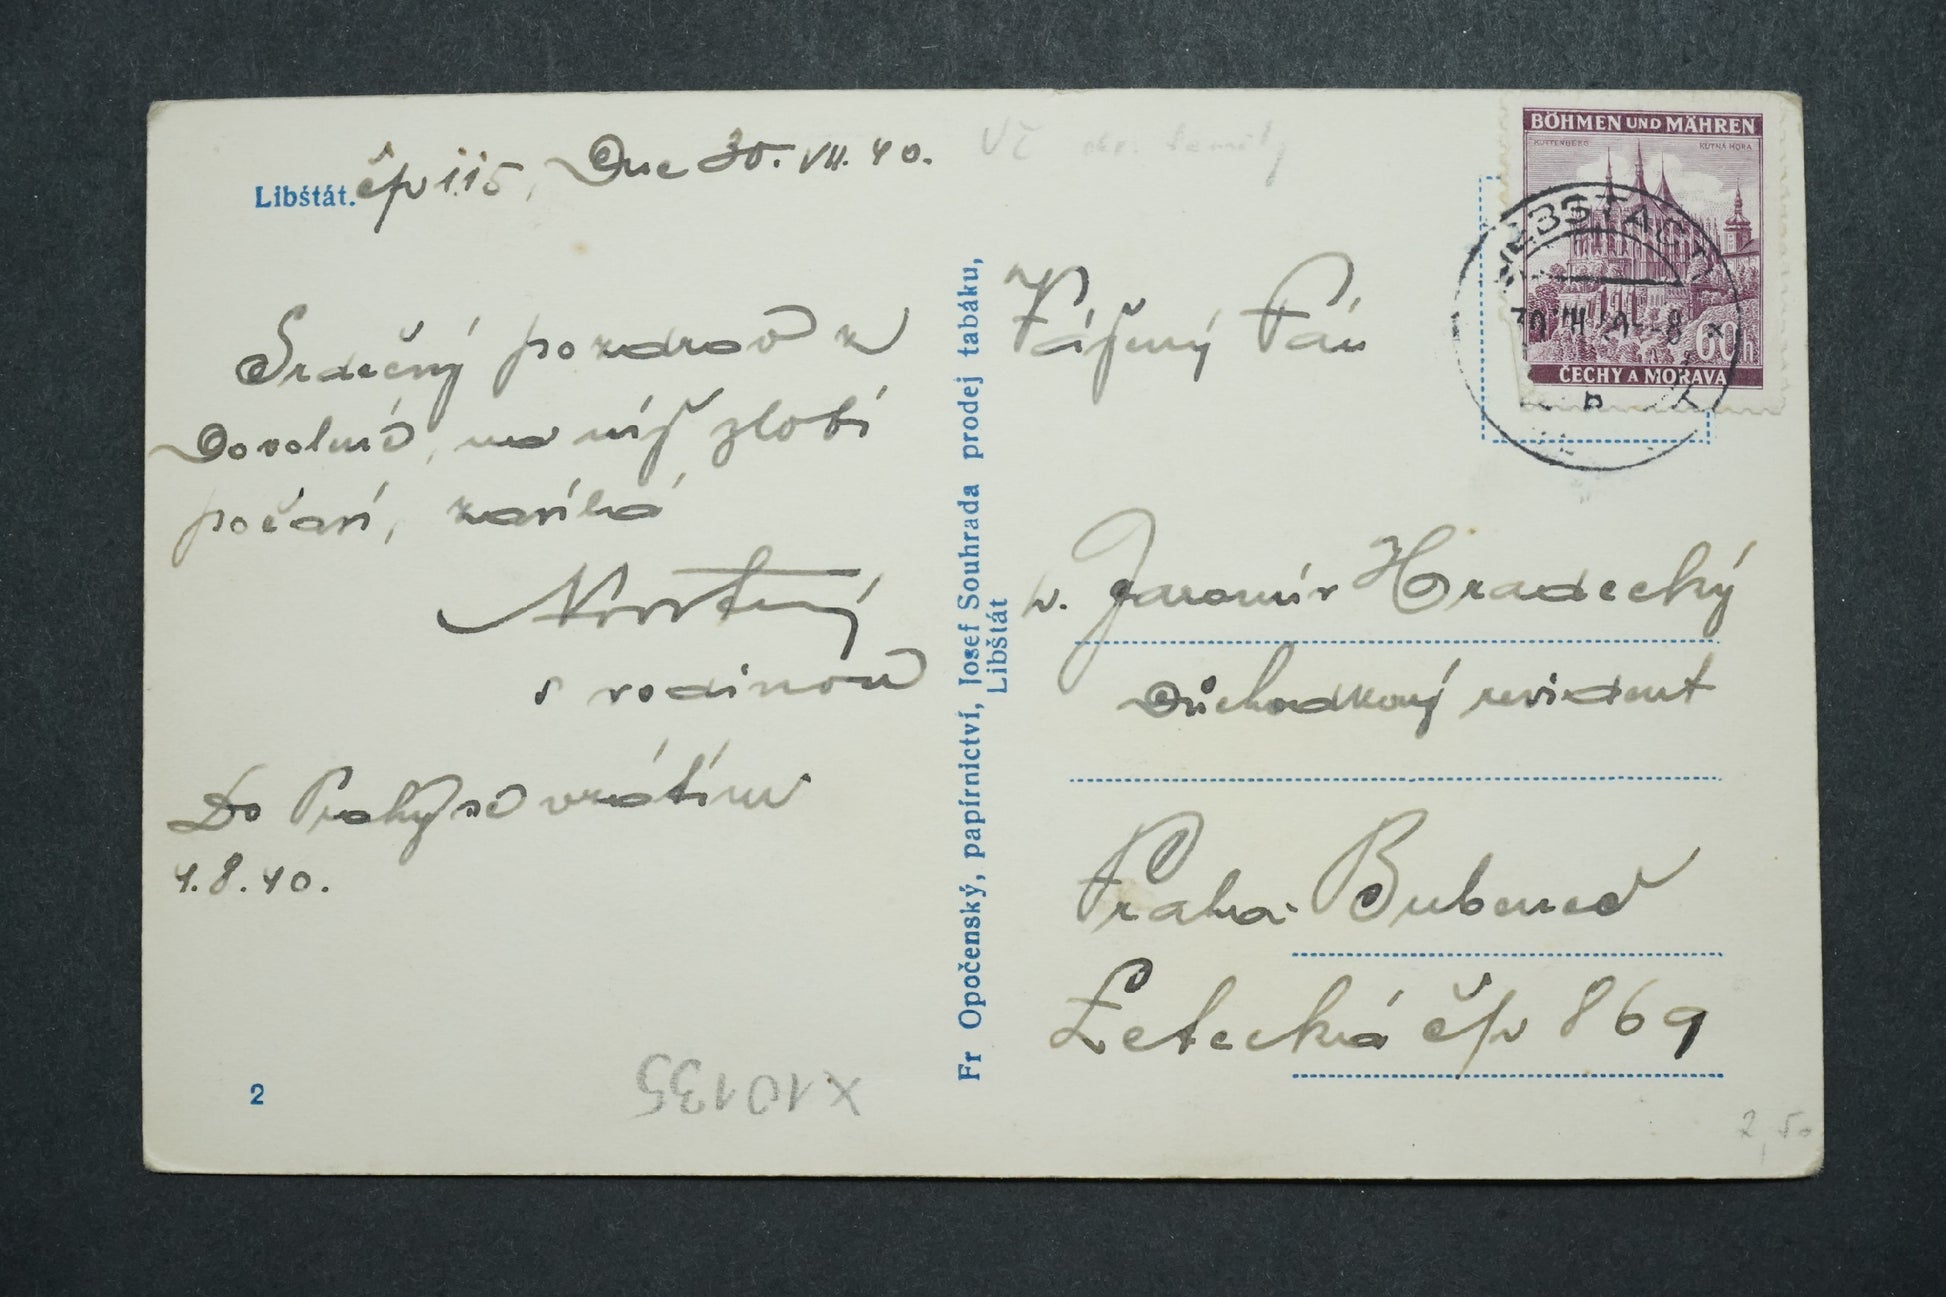 Libštát. čp 115, Dne 30. VII. 40.
Srdečný pozdrav z
Dovolené, na níž zlobí
počasí, zasílá
s rodinou
Do Prahy se vrátím
1.8.40.
2
X10135
Fr Opočenský, papírnictví, Josef Souhrada prodej tabáku,
Libštát
BÖHMEN UND MÄHREN
KUTTENBERG KUTNÁ HORA
60h
ČECHY A MORAVA
Vážený Pán
p. Jaromír Hradecký
Důchodkový revident
Praha-Bubeneč
Letecká čp 869
2,50